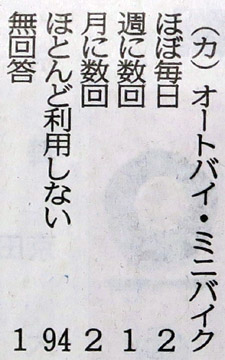 （カ）オートバイ・ミニバイク
ほぼ毎日 2
週に数回 1
月に数回 2
ほとんど利用しない 94
無回答 1